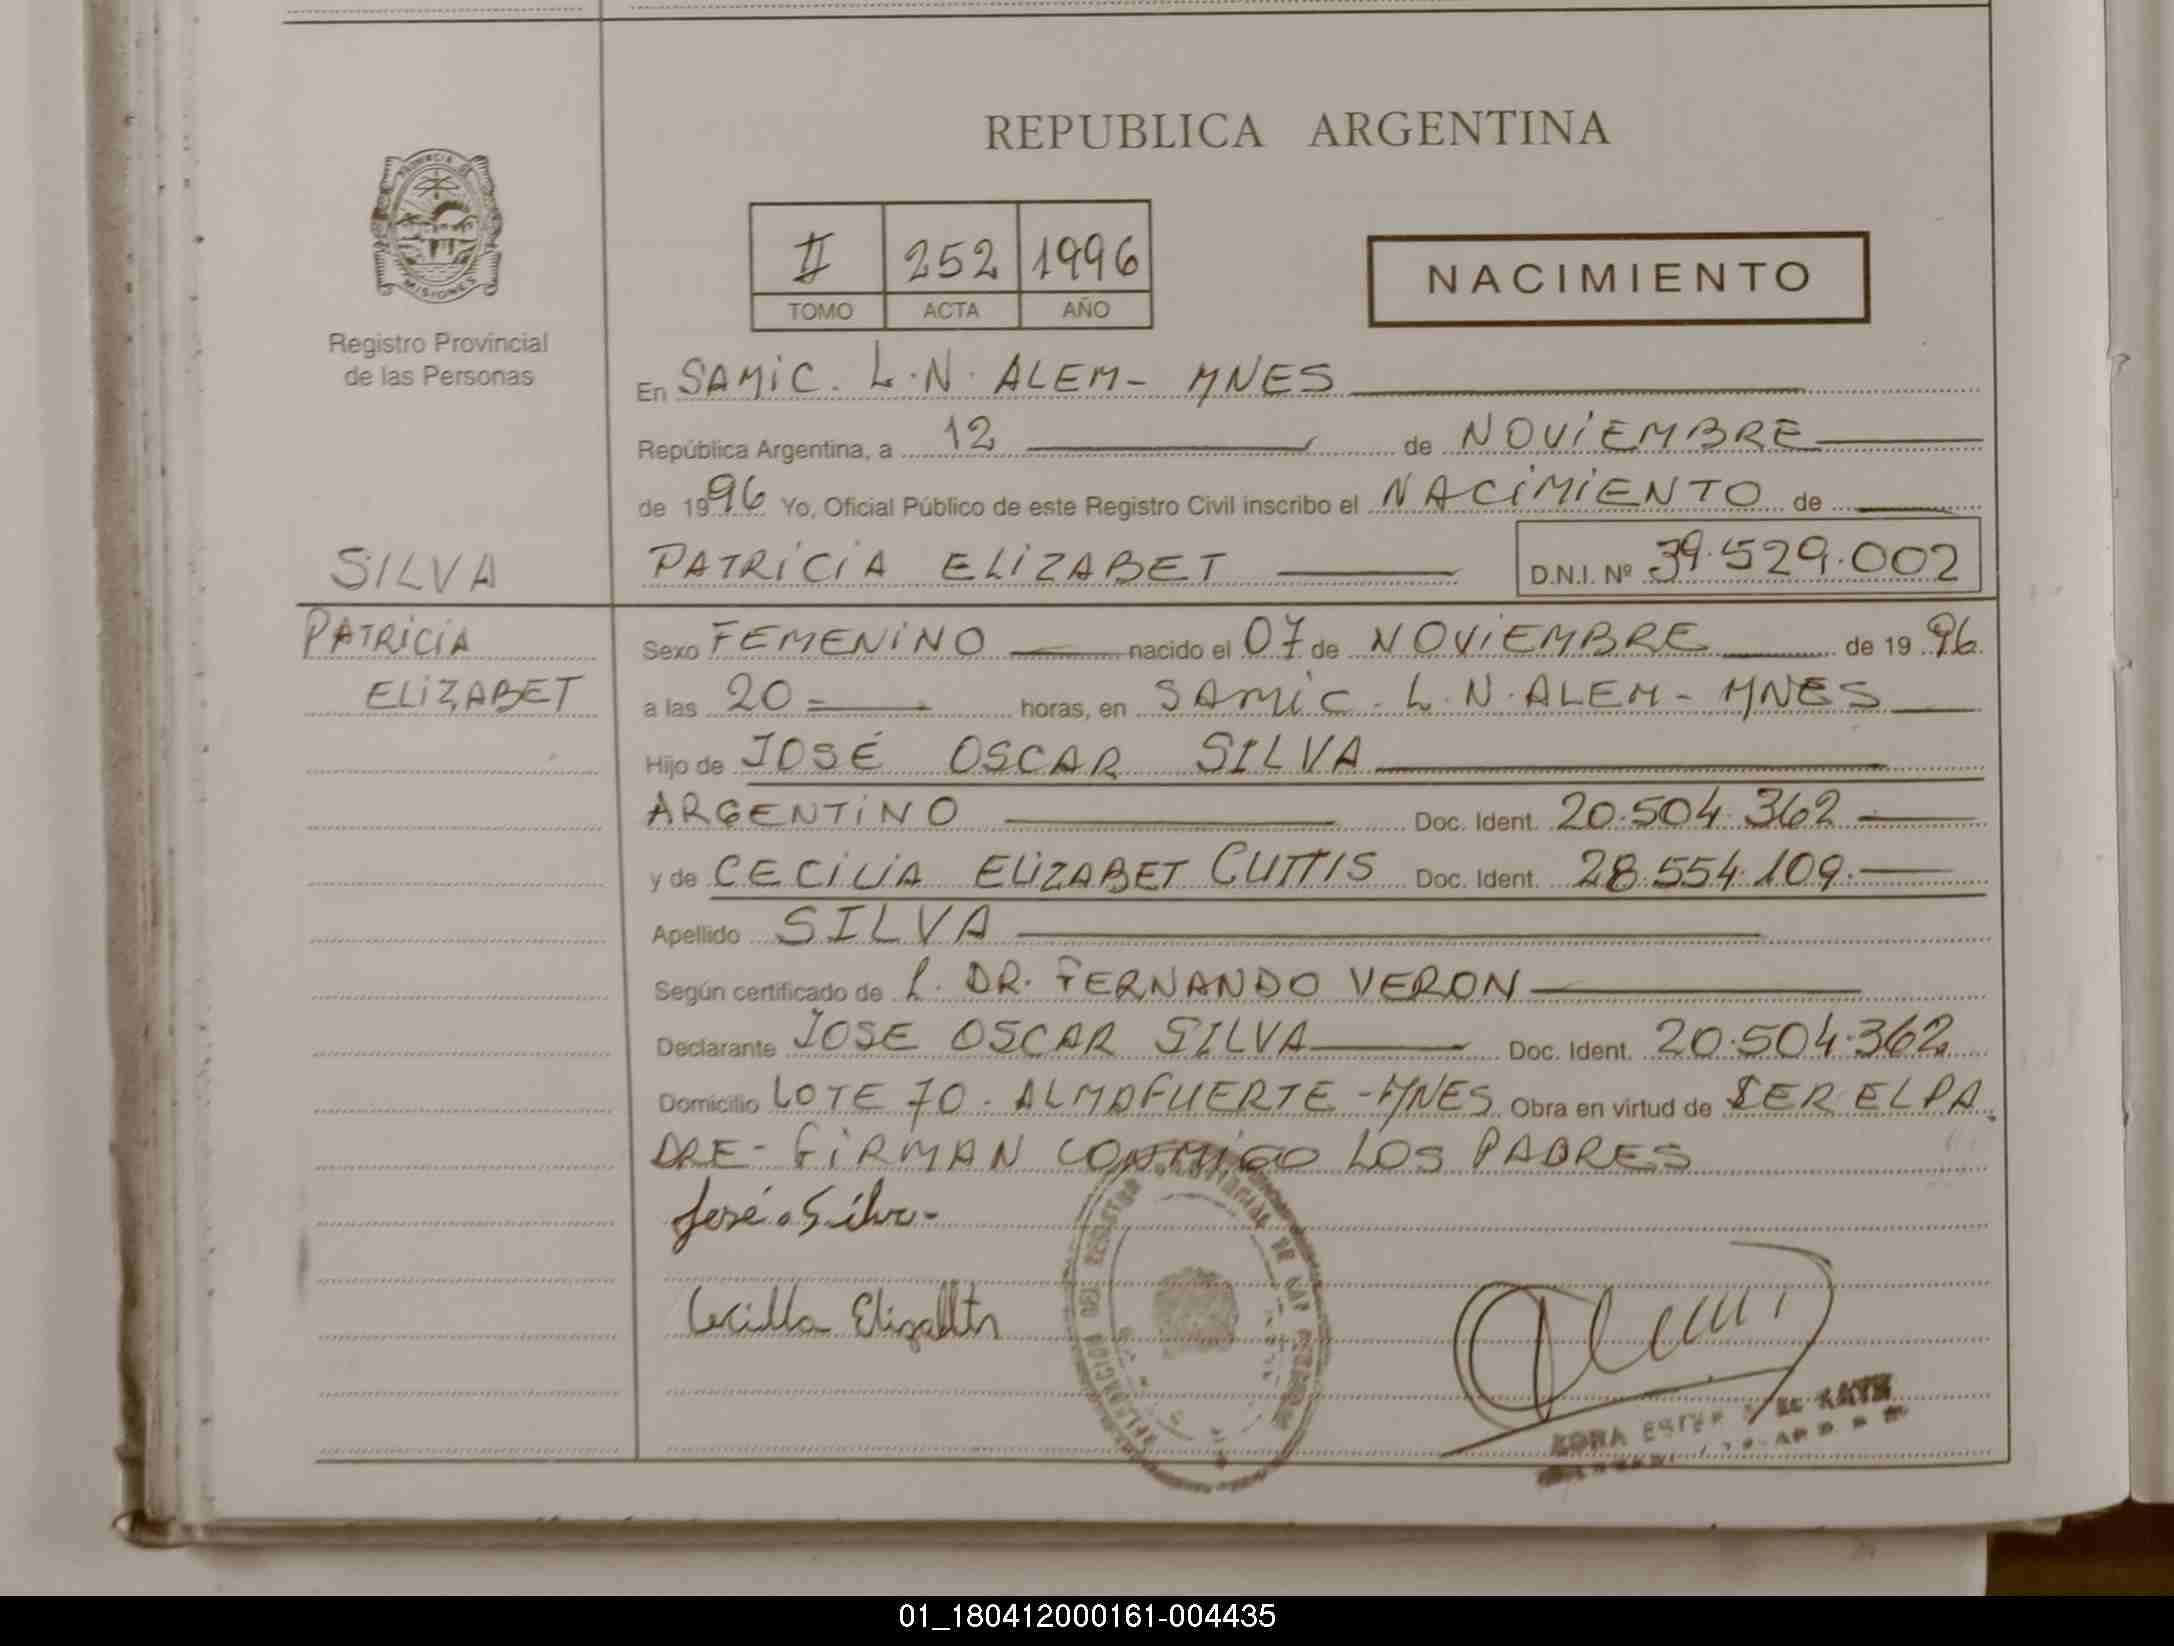 REPUBLICA ARGENTINA
PROVINCIA DE
MISIONES
Registro Provincial
de las Personas
II 252 1996
TOMO ACTA AÑO
NACIMIENTO
En SAMIC. L.N. ALEM - MNES
República Argentina, a 12 de NOVIEMBRE
de 1996 Yo, Oficial Público de este Registro Civil inscribo el NACIMIENTO de
SILVA
PATRICIA ELIZABET
D.N.I. Nº 39.529.002
PATRICIA
ELIZABET
Sexo FEMENINO nacido el 07 de NOVIEMBRE de 1996.
a las 20 horas, en SAMIC. L.N. ALEM - MNES
Hijo de JOSÉ OSCAR SILVA
ARGENTINO Doc. Ident. 20.504.362
y de CECILIA ELIZABET CUTTIS Doc. Ident. 28.554.109.
Apellido SILVA
Según certificado de L. DR. FERNANDO VERON
Declarante JOSE OSCAR SILVA Doc. Ident. 20.504.362
Domicilio LOTE 70. ALMAFUERTE - MNES Obra en virtud de SER EL PA
DRE - FIRMAN CONMIGO LOS PADRES
José o Silva-
Cecilia
ESTER
01_180412000161-004435